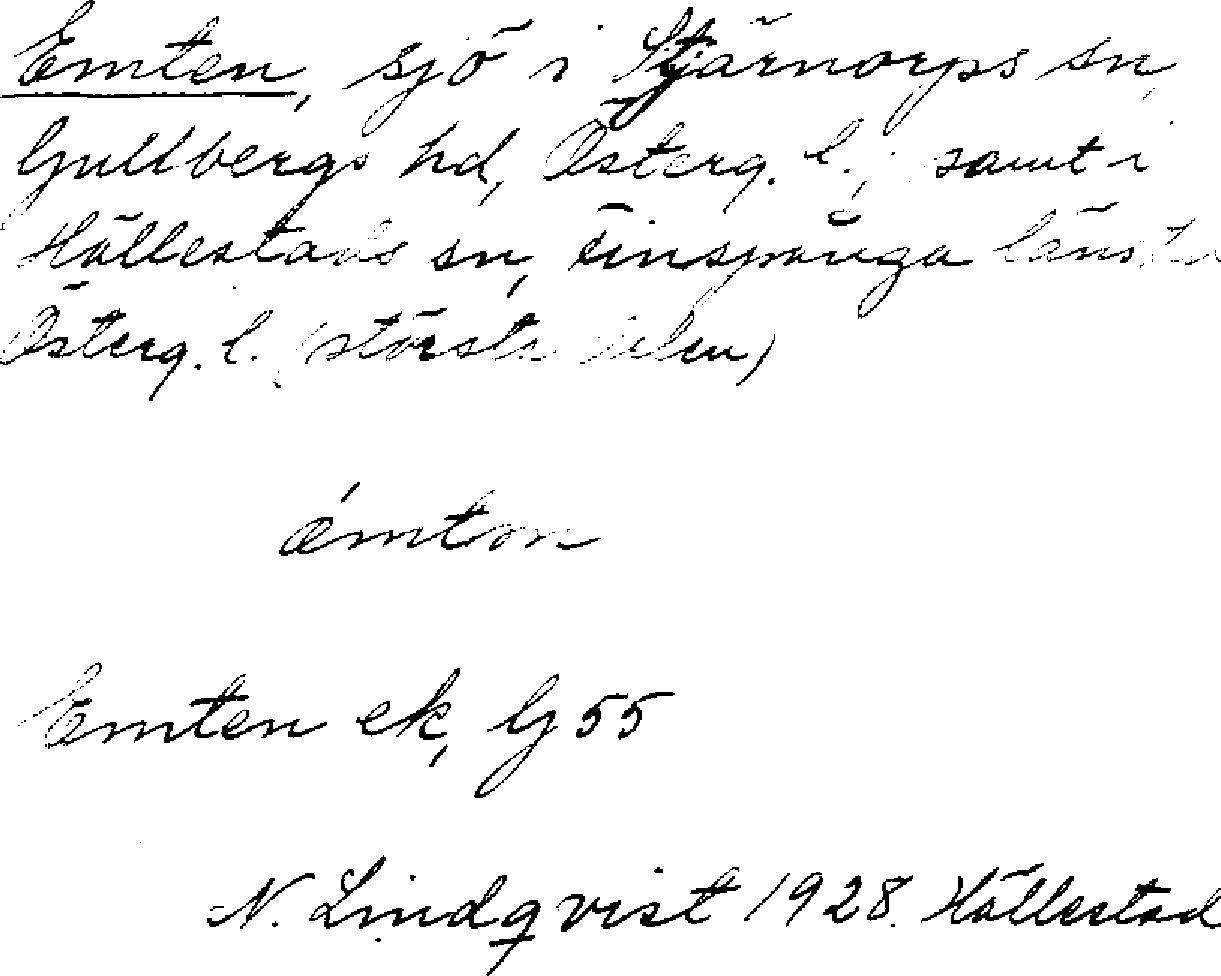 Emten, sjö i Stjärnorps sn,
Gullbergs hd, Österg. l.; samt i
Hällestads sn, Finspånga länsh
Österg. l. (största delen)
ǽmtən
Emten ek, G 55
N. Lindqvist 1928. Hällestad